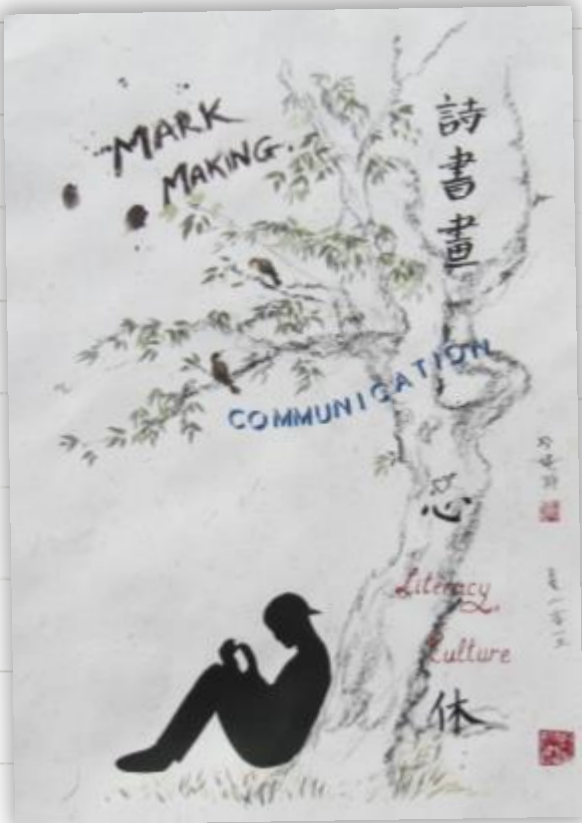 MARK
MAKING.
詩書畫
COMMUNICATION
Literacy
Culture
休